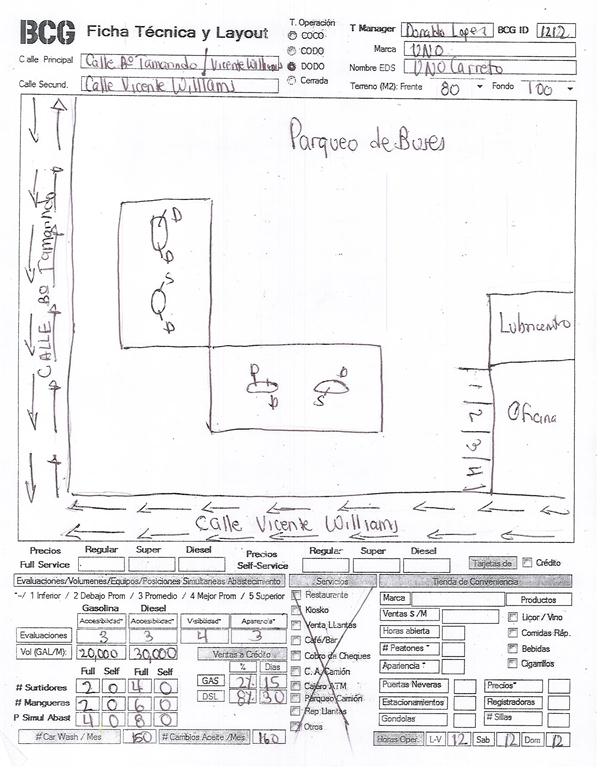 BCG Ficha Técnica y Layout
T. Operación
COCO
CODO
DODO
Cerrada
T Manager Donaldo Lopez BCG ID 1212
Marca UNO
Nombre EDS UNO Carreto
Terreno (M2): Frente 80 Fondo 100
Calle Principal Calle Bº Tamarindo / Vicente Williams
Calle Secund. Calle Vicente Williams
Parqueo de Buses
CALLE Bº Tamarindo
D
D
S
D
D
D
D
S
Lubricentro
Oficina
1
2
3
4
Calle Vicente Williams
Precios Regular Super Diesel Precios Regular Super Diesel
Full Service Self-Service Tarjetas de Crédito
Evaluaciones/Volumenes/Equipos/Posiciones Simultaneas Abastecimiento Servicios Tienda de Conveniencia
*-/ 1 Inferior / 2 Debajo Prom / 3 Promedio / 4 Mejor Prom / 5 Superior
Gasolina Diesel
Accesibilidad* Accesibilidad* Visibilidad* Apariencia*
Evaluaciones 3 3 4 3
Vol (GAL/M): 20,000 30,000 Ventas a Crédito
Full Self Full Self % Dias
GAS 2% 15
DSL 8% 30
# Surtidores 2 0 4 0
# Mangueras 2 0 6 0
P Simul Abast 4 0 8 0
# Car Wash / Mes 150 # Cambios Aceite /Mes 160
Restaurante
Kiosko
Venta LLantas
Café/Bar
Cobro de Cheques
C. A. Camión
Cajero ATM
Parqueo Camión
Rep Llantas
Otros
Marca Productos
Ventas $ /M Liçor / Vino
Horas abierta Comidas Ráp.
# Peatones * Bebidas
Apariencia * Cigarrillos
Puertas Neveras Precios*
Estacionamientos Registradoras
Gondolas # Sillas
Horas Oper. L-V 12 Sab 12 Dom 12